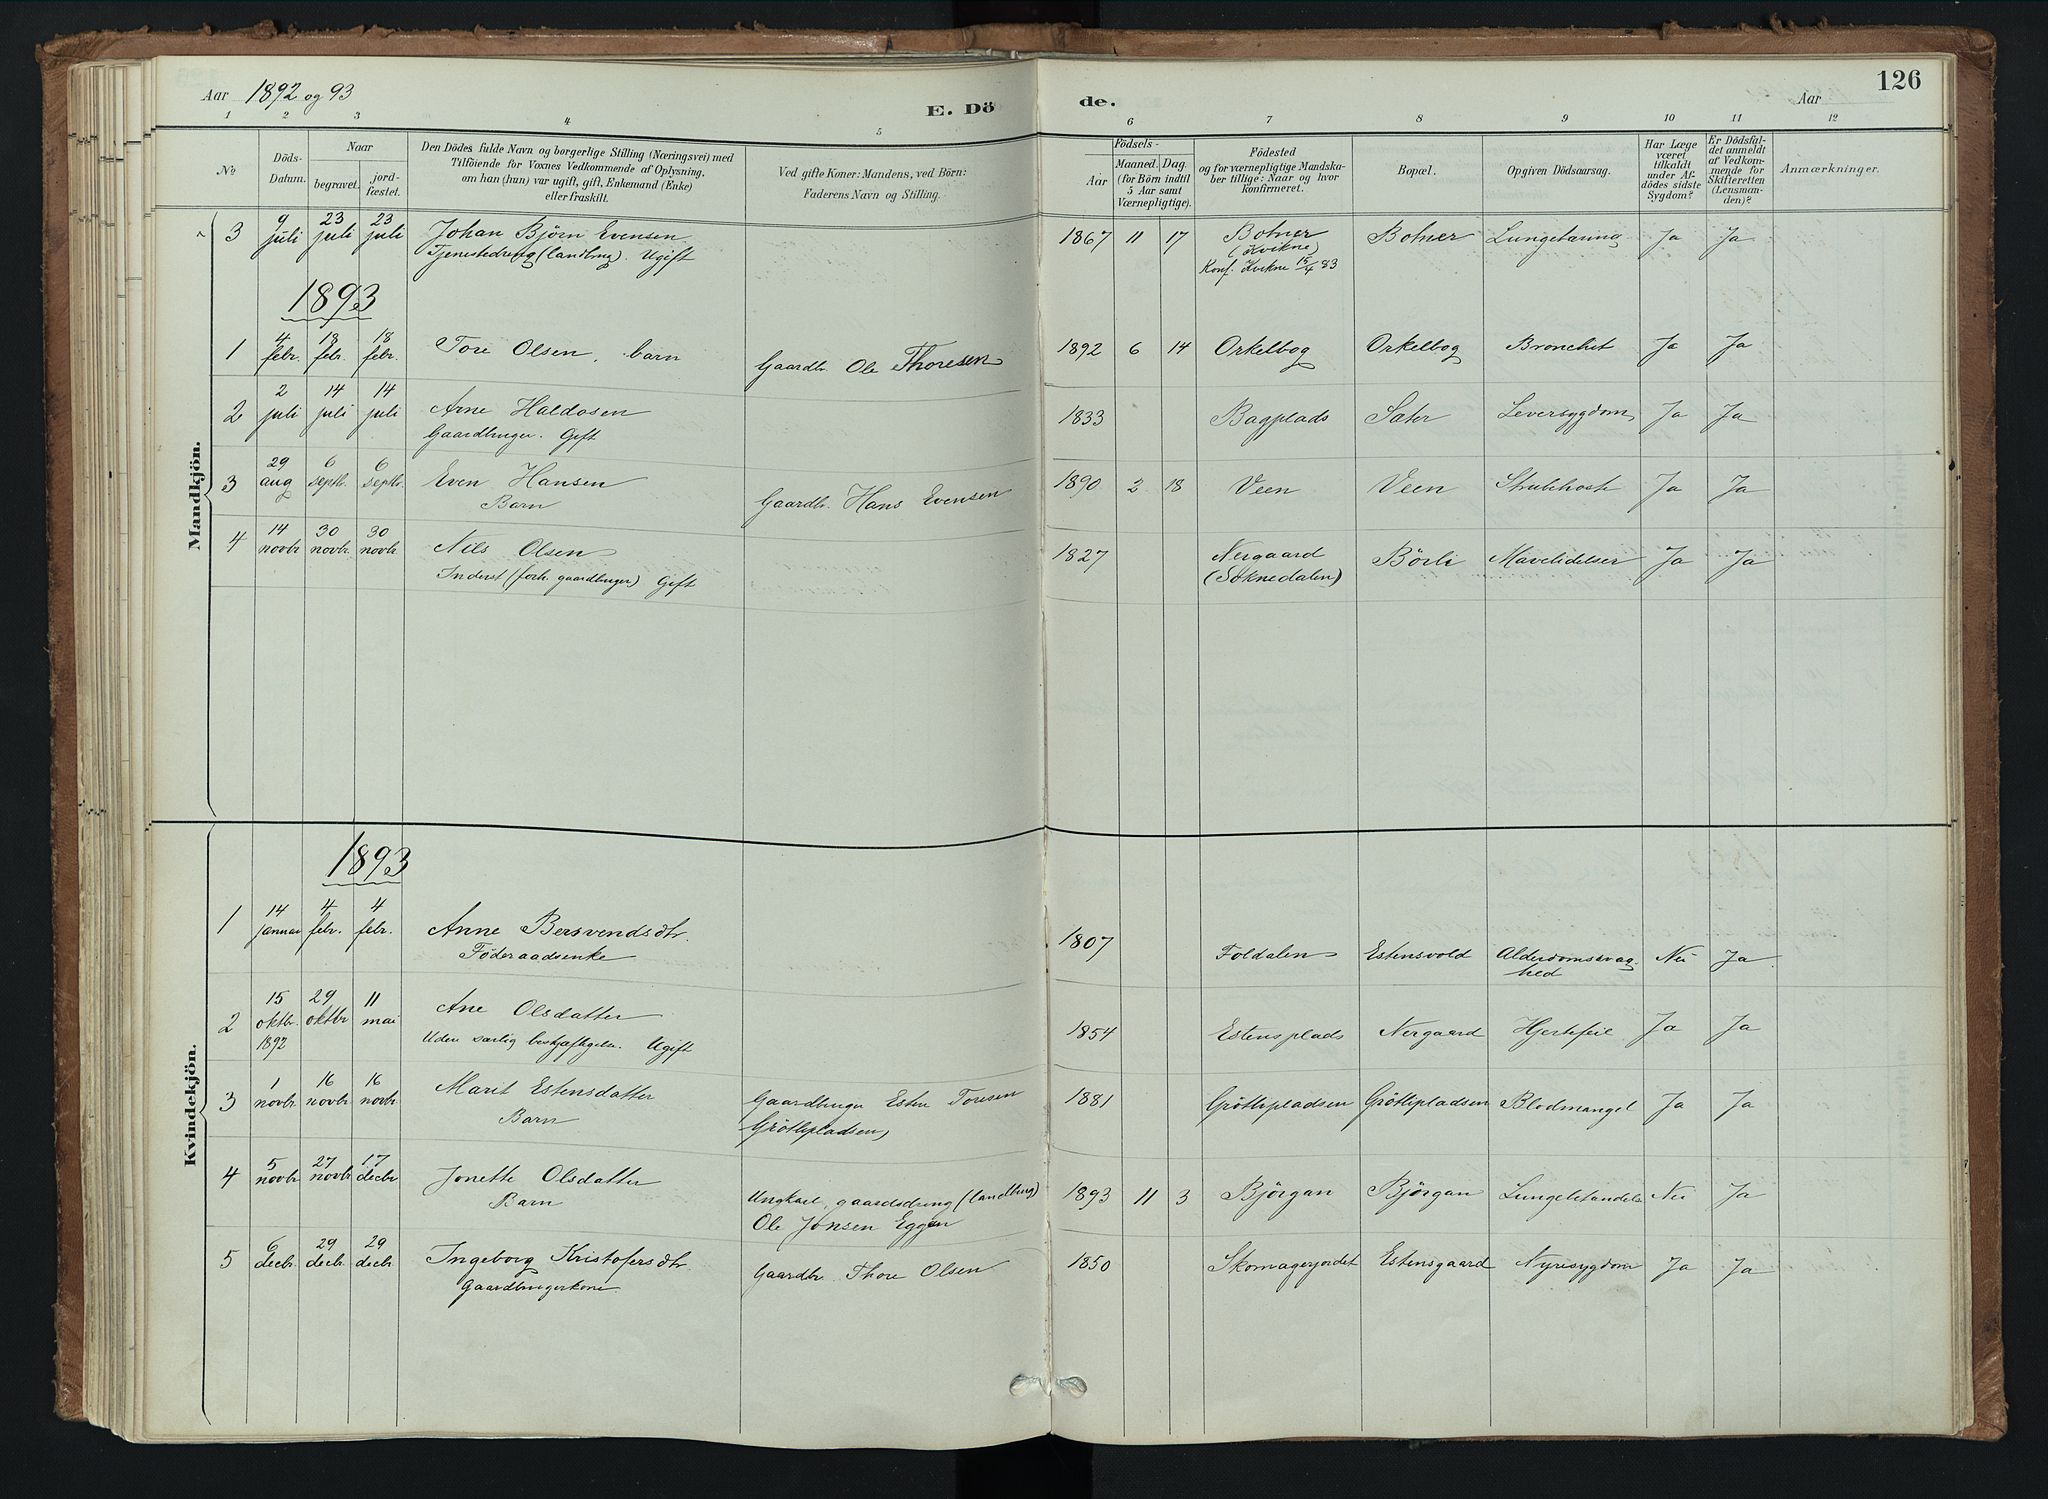 Aar 1892 og 93
E. Dö de.
Aar
126
1 2 3 4 5 6 7 8 9 10 11 12
No
Döds-Datum.
Naar
begravet.
jord-fæstet.
Den Dödes fulde Navn og borgerlige Stilling (Næringsvei) med
Tilföiende for Voxnes Vedkommende af Oplysning,
om han (hun) var ugift, gift, Enkemand (Enke)
eller fraskilt.
Ved gifte Koner: Mandens, ved Börn:
Faderens Navn og Stilling.
Födsels-
Aar
Maaned. Dag.
(for Börn indtil
5 Aar samt
Værnepligtige).
Födested
og for værnepligtige Mandska-
ber tillige: Naar og hvor
konfirmeret.
Bopæl.
Opgiven Dödsaarsag.
Har Læge
været
tilkaldt
under Af-
dödes sidste
Sygdom?
Er Dödsfal-
det anmeldt
af Vedkom-
mende for
Skifteretten
(Lensman-
den)?
Anmærkninger.
Mandkjön.
3 9 juli 23 juli 23 juli Johan Bjørn Evensen 1867 11 17 Botner Botner Lungetæring Ja Ja
Tjenestedreng (landbrug). Ugift (Kvikne)
Konf. Kvikne 15/4 83
1893
1 4 febr. 18 febr. 18 febr. Tore Olsen, barn Gaardbr. Ole Thoresen 1892 6 14 Orkelbog Orkelbog Bronchit Ja Ja
2 2 juli 14 juli 14 juli Arne Haldosen 1833 Bagplads Sæter Leversygdom Ja Ja
Gaardbruger. Gift
3 29 aug 6 septbr. 6 septbr. Even Hansen Gaardbr. Hans Evensen 1890 2 18 Veen Veen Strubehoste Ja Ja
Barn
4 14 novbr. 30 novbr. 30 novbr. Nils Olsen 1827 Nergaard Börli Mavelidelser Ja Ja
Inderst (forh. gaardbruger) Gift (Soknedalen)
Kvindekjön.
1893
1 14 januar 4 febr. 4 febr. Anne Bersvendsdtr. 1807 Foldalen Estensvold Alderdomssvag- Nei Ja
Föderaadsenke hed
2 15 oktbr. 1892 29 oktbr 11 mai Ane Olsdatter 1854 Estensplads Nergaard Hjertefeil Ja Ja
Uden særlig beskjæftigelse. Ugift
3 1 novbr. 16 novbr 16 novbr. Marit Estensdatter Gaardbruger Esten Toresen 1881 Grötlipladsen Grötlipladsen Blodmangel Ja Ja
Barn Grötlipladsen
4 5 novbr. 27 novbr 17 decbr Jonette Olsdatter Ungkarl, gaardsdreng (landbrug) 1893 11 3 Bjørgan Bjørgan Lungebetændelse Nei Ja
Barn Ole Jonsen Eggen
5 6 decbr. 29 decbr. 29 decbr. Ingeborg Kristofersdtr. Gaardbr. Thore Olsen 1850 Skomagerjordet Estensgaard Nyresygdom Ja Ja
Gaardbrugerkone